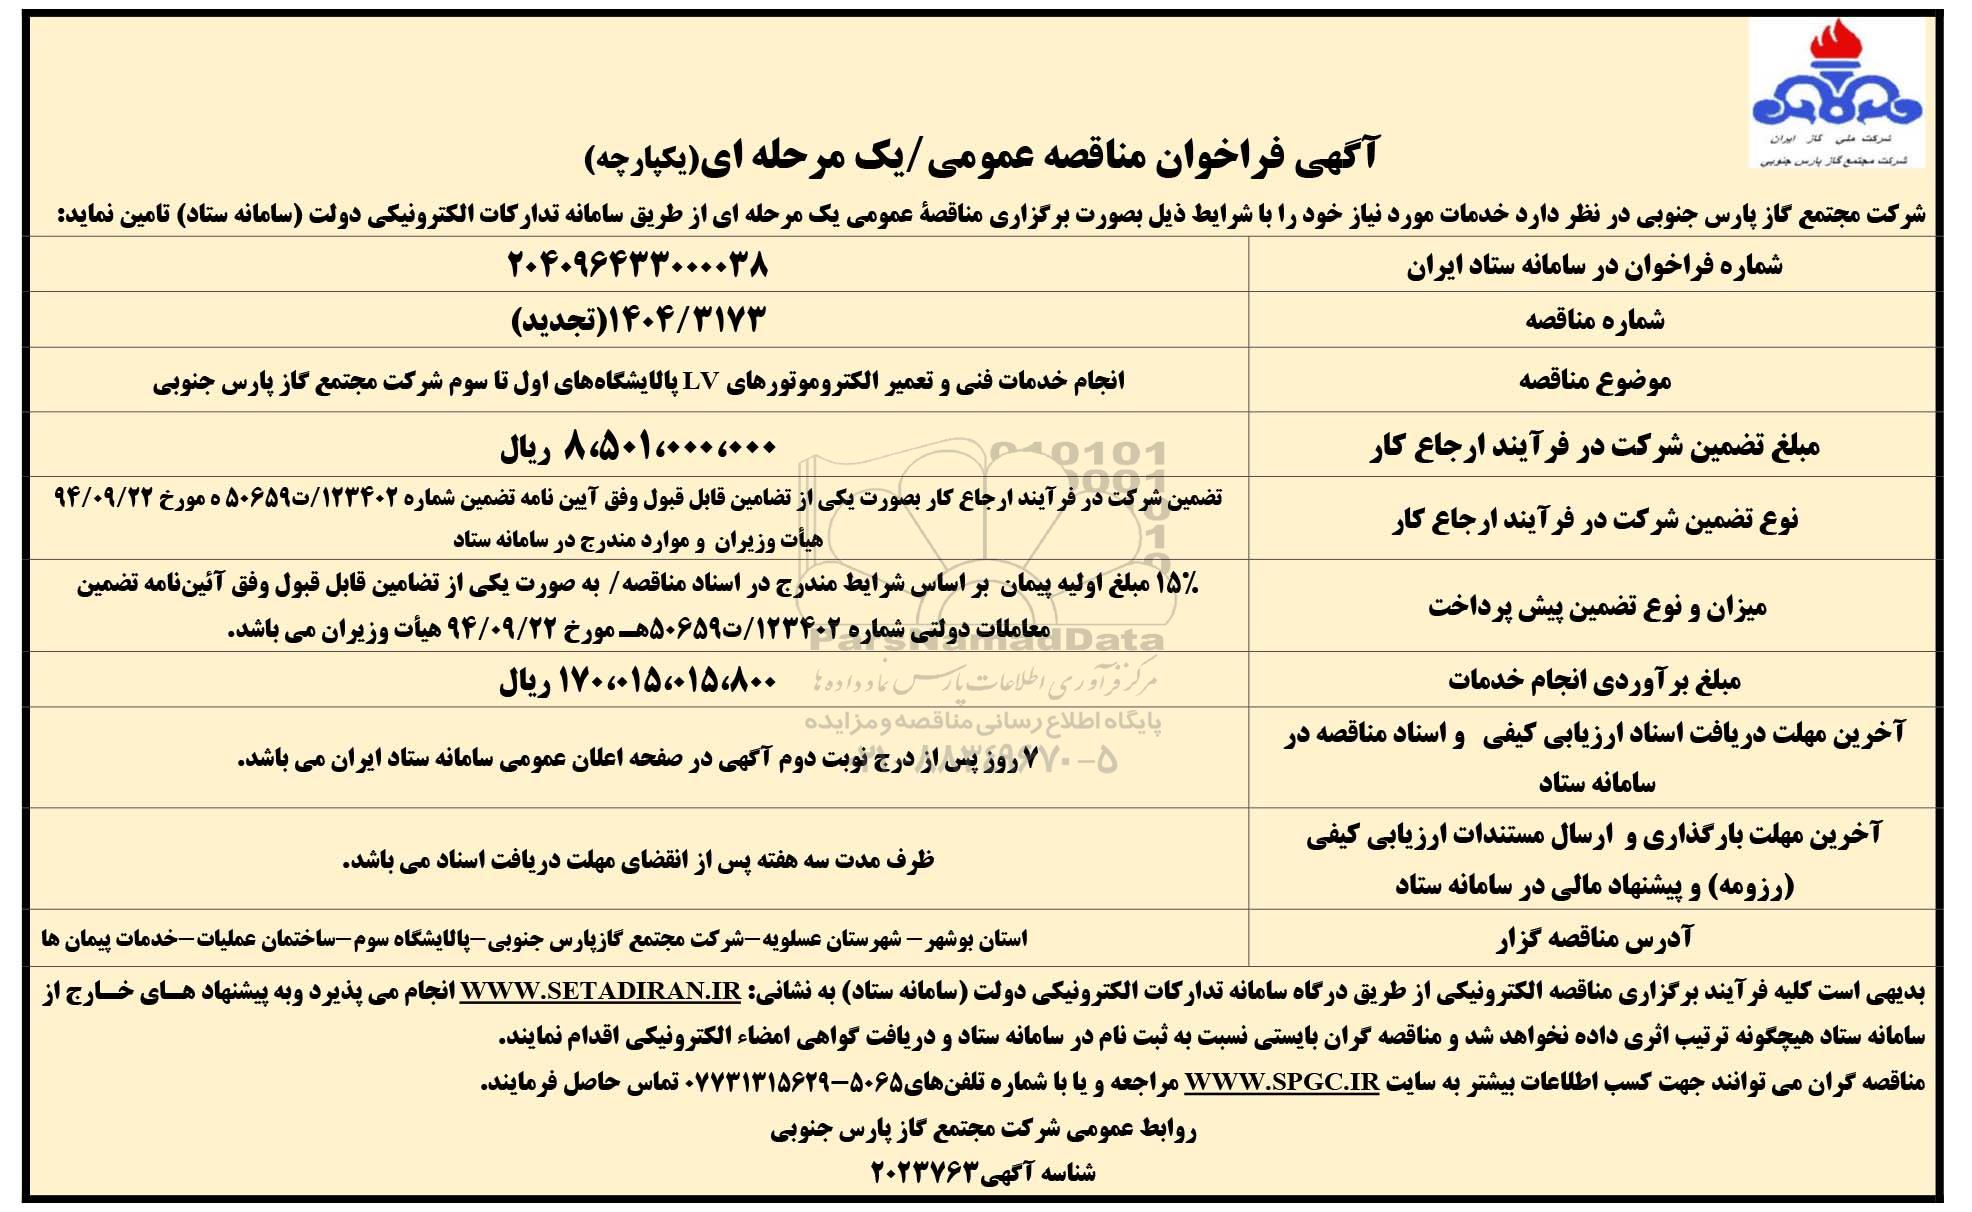 شرکت ملی گاز ایران
شرکت مجتمع گاز پارس جنوبی
آگهی فراخوان مناقصه عمومی/یک مرحله ای(یکپارچه)
شرکت مجتمع گاز پارس جنوبی در نظر دارد خدمات مورد نیاز خود را با شرایط ذیل بصورت برگزاری مناقصۀ عمومی یک مرحله ای از طریق سامانه تدارکات الکترونیکی دولت (سامانه ستاد) تامین نماید:
شماره فراخوان در سامانه ستاد ایران
۲۰۴۰۹۶۴۳۳۰۰۰۰۳۸
شماره مناقصه
۱۴۰۴/۳۱۷۳(تجدید)
موضوع مناقصه
انجام خدمات فنی و تعمیر الکتروموتورهای LV پالایشگاه‌های اول تا سوم شرکت مجتمع گاز پارس جنوبی
مبلغ تضمین شرکت در فرآیند ارجاع کار
۸،۵۰۱،۰۰۰،۰۰۰ ریال
نوع تضمین شرکت در فرآیند ارجاع کار
تضمین شرکت در فرآیند ارجاع کار بصورت یکی از تضامین قابل قبول وفق آیین نامه تضمین شماره ۱۲۳۴۰۲/ت۵۰۶۵۹ ه مورخ ۹۴/۰۹/۲۲
هیأت وزیران و موارد مندرج در سامانه ستاد
میزان و نوع تضمین پیش پرداخت
۱۵% مبلغ اولیه پیمان بر اساس شرایط مندرج در اسناد مناقصه/ به صورت یکی از تضامین قابل قبول وفق آئین‌نامه تضمین
معاملات دولتی شماره ۱۲۳۴۰۲/ت۵۰۶۵۹هـ مورخ ۹۴/۰۹/۲۲ هیأت وزیران می باشد.
مبلغ برآوردی انجام خدمات
۱۷۰،۰۱۵،۰۱۵،۸۰۰ ریال
آخرین مهلت دریافت اسناد ارزیابی کیفی و اسناد مناقصه در
سامانه ستاد
۷ روز پس از درج نوبت دوم آگهی در صفحه اعلان عمومی سامانه ستاد ایران می باشد.
آخرین مهلت بارگذاری و ارسال مستندات ارزیابی کیفی
(رزومه) و پیشنهاد مالی در سامانه ستاد
ظرف مدت سه هفته پس از انقضای مهلت دریافت اسناد می باشد.
آدرس مناقصه گزار
استان بوشهر- شهرستان عسلویه-شرکت مجتمع گازپارس جنوبی-پالایشگاه سوم-ساختمان عملیات-خدمات پیمان ها
بدیهی است کلیه فرآیند برگزاری مناقصه الکترونیکی از طریق درگاه سامانه تدارکات الکترونیکی دولت (سامانه ستاد) به نشانی: WWW.SETADIRAN.IR انجام می پذیرد وبه پیشنهاد هـای خـارج از
سامانه ستاد هیچگونه ترتیب اثری داده نخواهد شد و مناقصه گران بایستی نسبت به ثبت نام در سامانه ستاد و دریافت گواهی امضاء الکترونیکی اقدام نمایند.
مناقصه گران می توانند جهت کسب اطلاعات بیشتر به سایت WWW.SPGC.IR مراجعه و یا با شماره تلفن‌های۵۰۶۵-۰۷۷۳۱۳۱۵۶۲۹ تماس حاصل فرمایند.
روابط عمومی شرکت مجتمع گاز پارس جنوبی
شناسه آگهی۲۰۲۳۷۶۳
ParsNamadData
مرکز فرآوری اطلاعات پارس نماد داده ها
پایگاه اطلاع رسانی مناقصه و مزایده